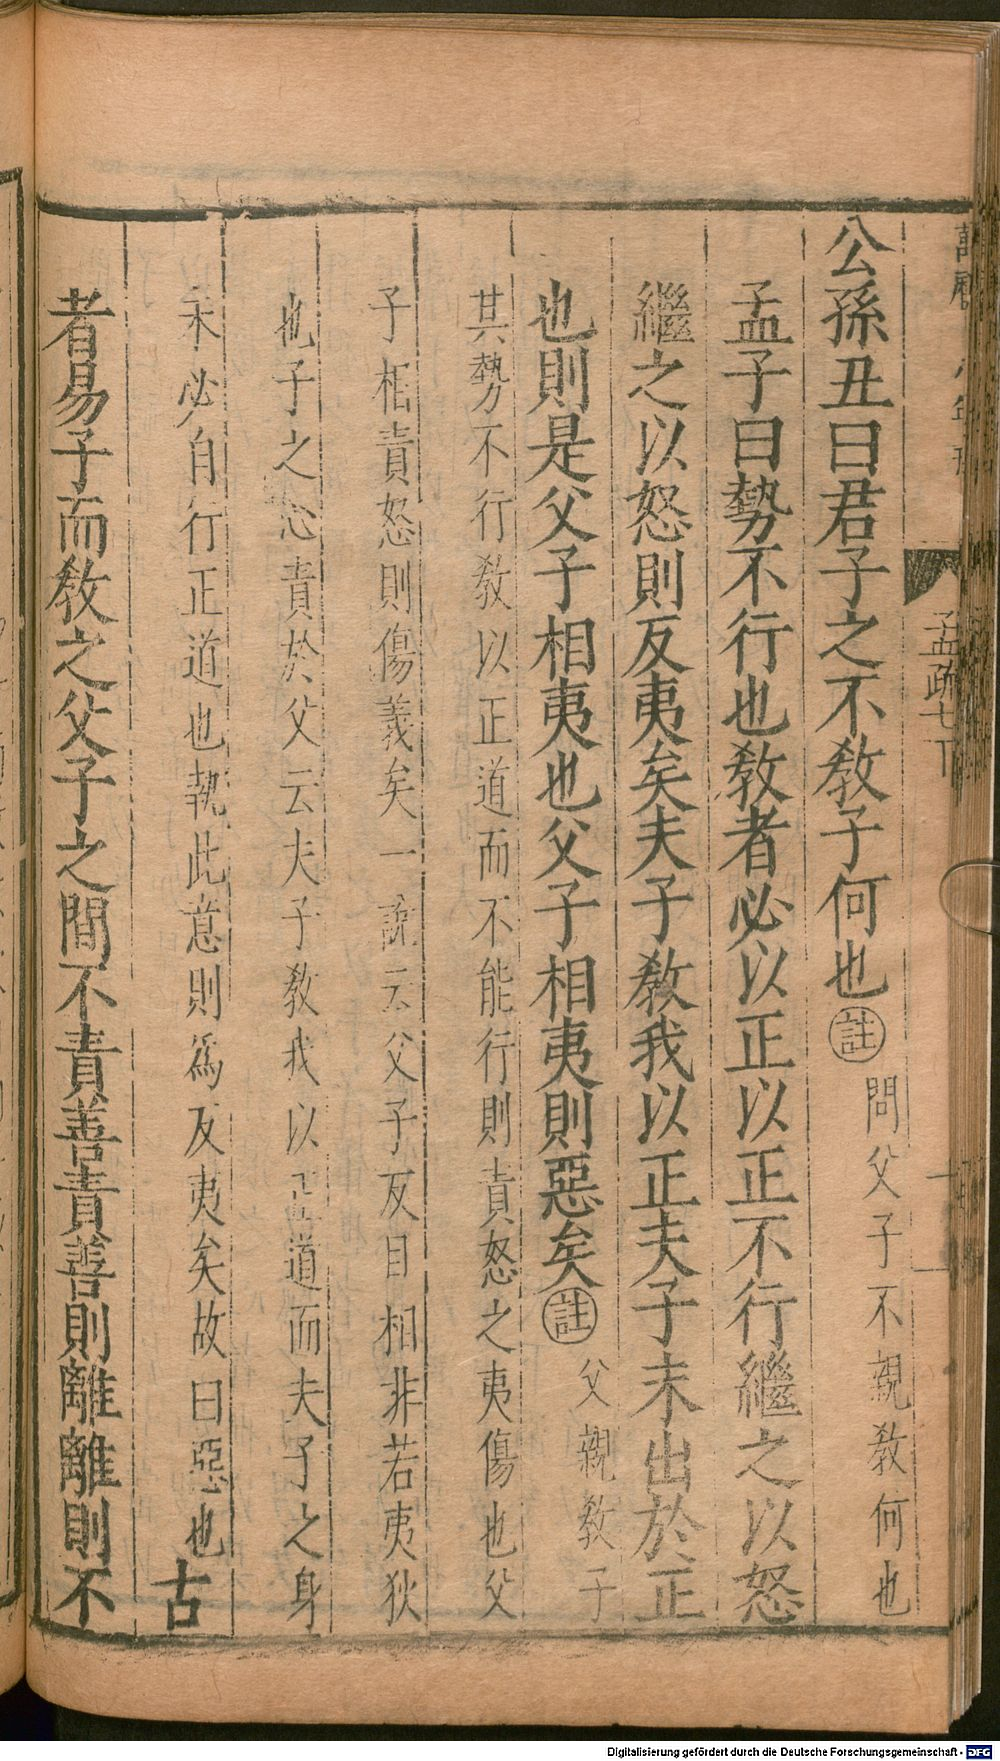 孟疏七下
公孫丑曰君子之不敎子何也註問父子不親敎何也
孟子曰勢不行也敎者必以正以正不行繼之以怒
繼之以怒則反夷矣夫子敎我以正夫子未出於正
也則是父子相夷也父子相夷則惡矣註父親敎子
其勢不行敎以正道而不能行則責怒之夷傷也父
子相責怒則傷義矣一說云父子反目相非若夷狄
也子之心責於父云夫子敎我以正道而夫子之身
未必自行正道也執此意則爲反夷矣故曰惡也古
者易子而敎之父子之間不責善責善則離離則不
Digitalisierung gefördert durch die Deutsche Forschungsgemeinschaft - DFG